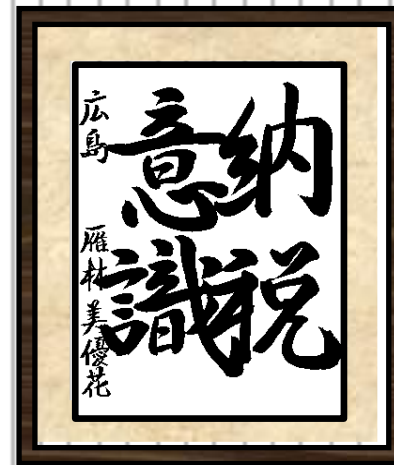 納税
意識
広島 雁林美優花